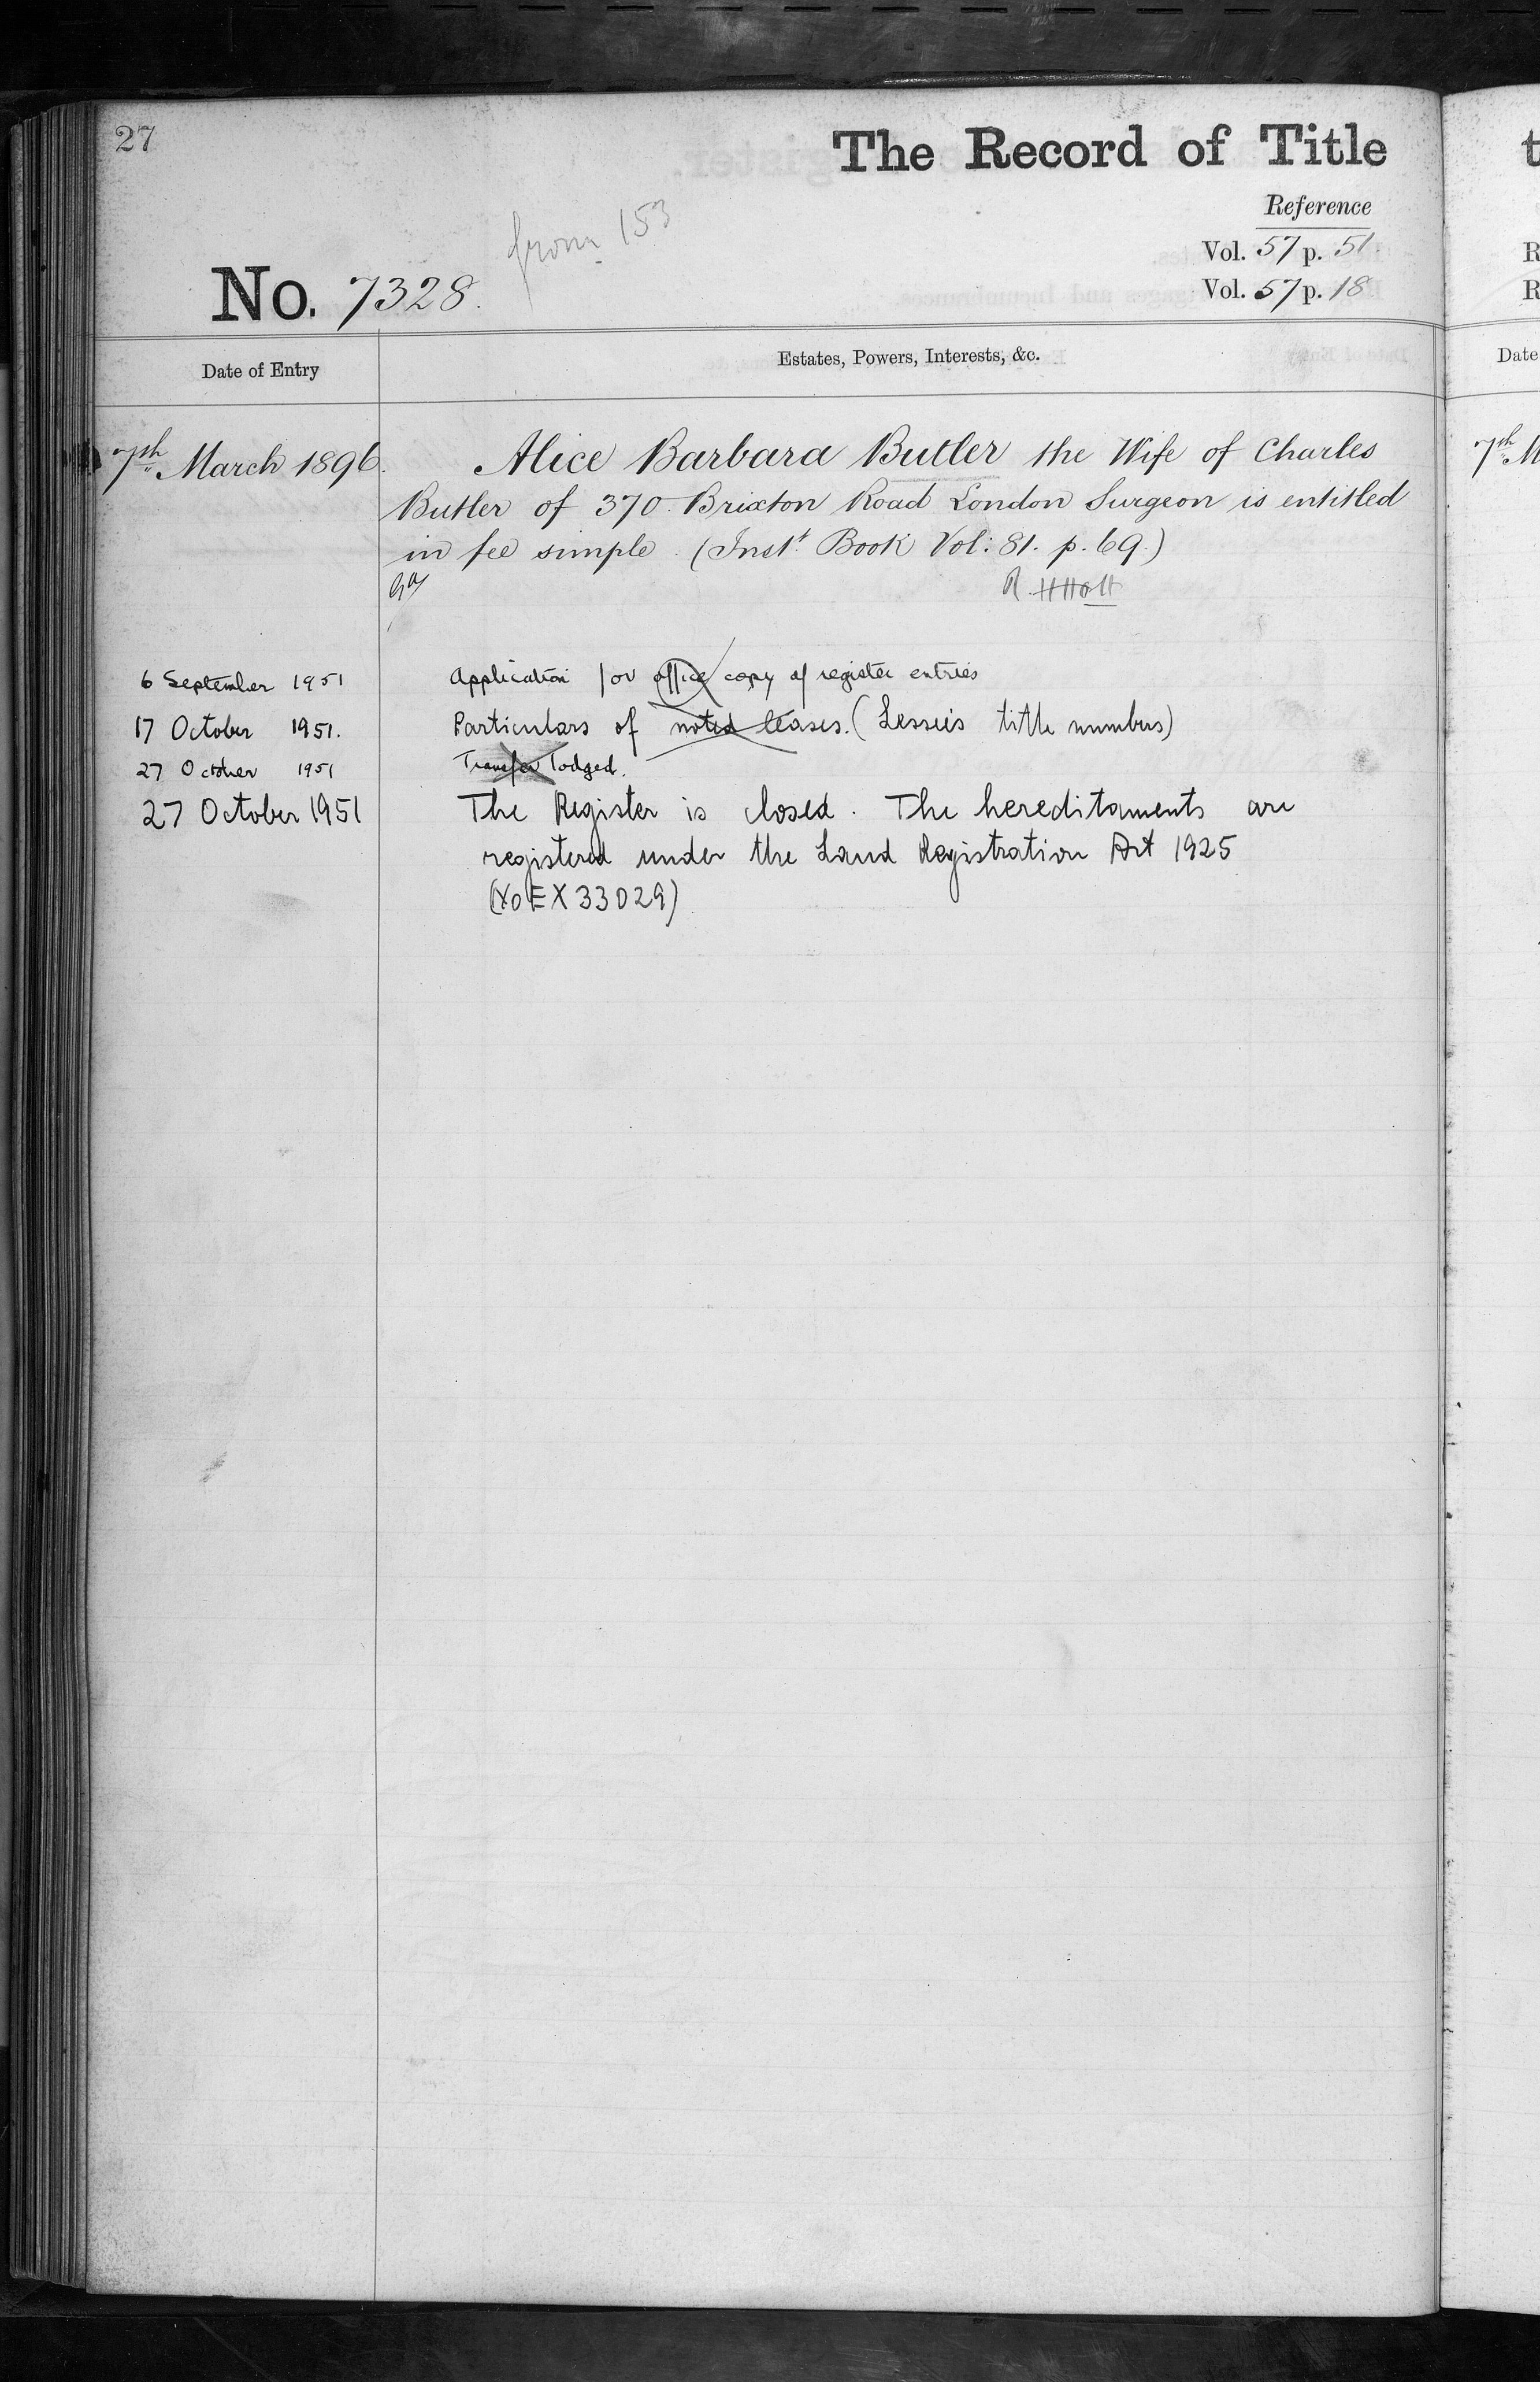 27
The Record of Title
Reference
from 153
Vol. 57 p. 51.
No. 7328.
Vol. 57 p. 18
Date of Entry
Estates, Powers, Interests, &c.
7th March 1896. Alice Barbara Butler the Wife of Charles
Butler of 370 Brixton Road London Surgeon is entitled
in fee simple. (Inst. Book Vol: 81. p. 69.)
R. H Holt
6 September 1951 Application for office copy of register entries
17 October 1951. Particulars of noted leases. (Lessee's title numbers)
27 October 1951 Transfer lodged.
27 October 1951 The Register is closed. The hereditaments are
registered under the Land Registration Act 1925
EX33029)
t
R
R
Date
7th M